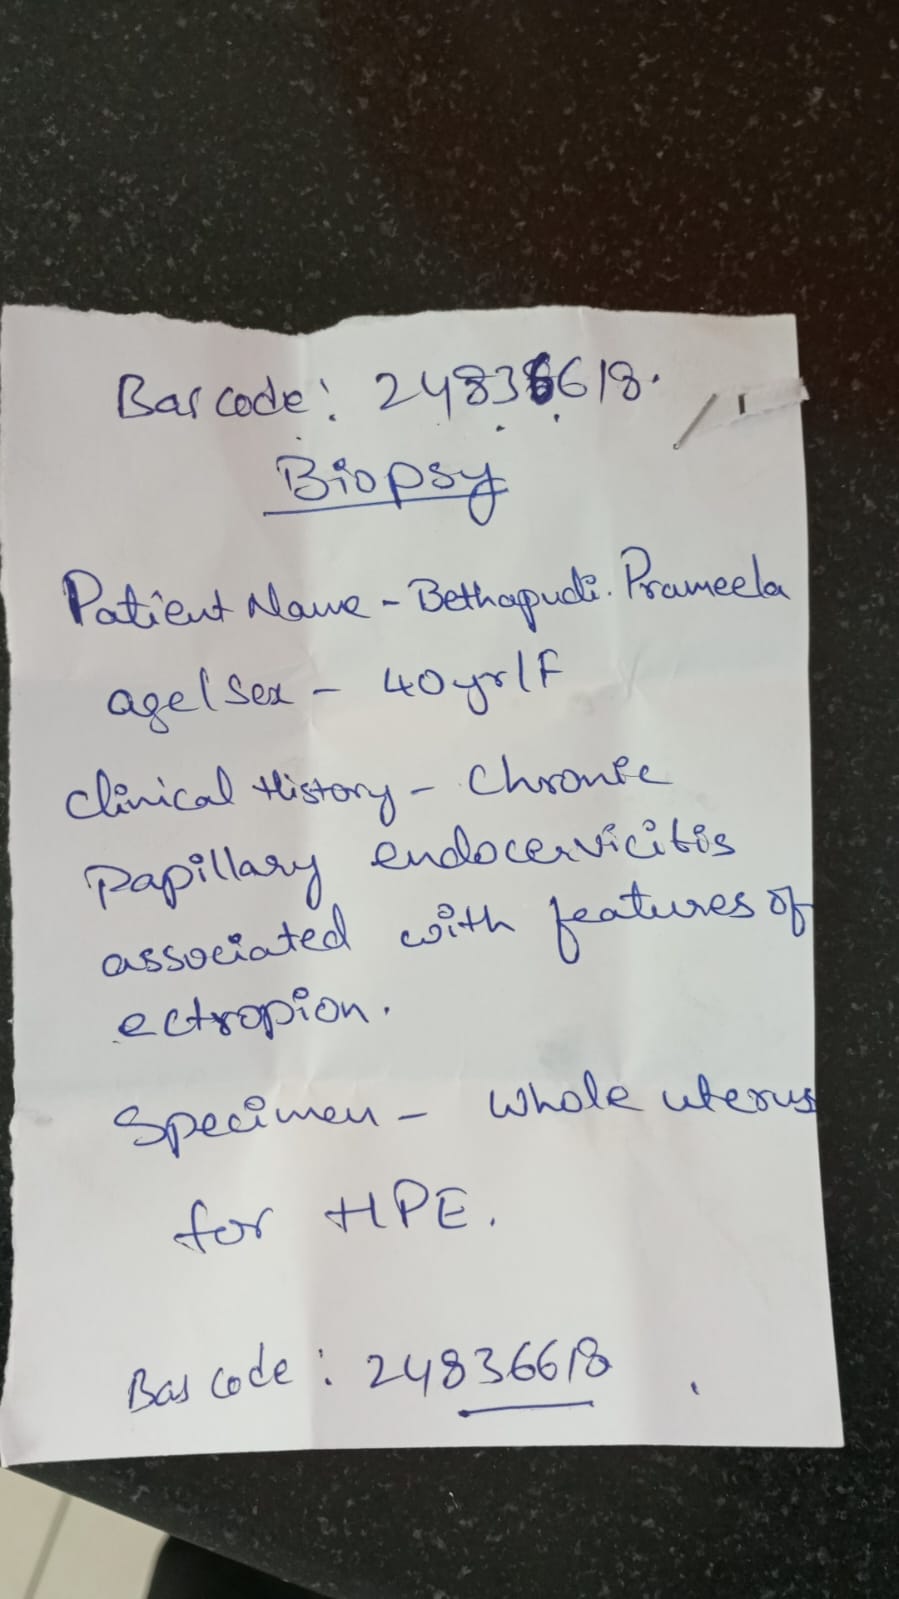 Barcode: 24836618.
Biopsy
Patient Name - Bethapudi. Prameela
age/Sex - 40yr/F
Clinical History - Chronic
Papillary endocervicitis
associated with features of
ectropion.
Specimen - Whole uterus
for HPE.
Barcode: 24836618